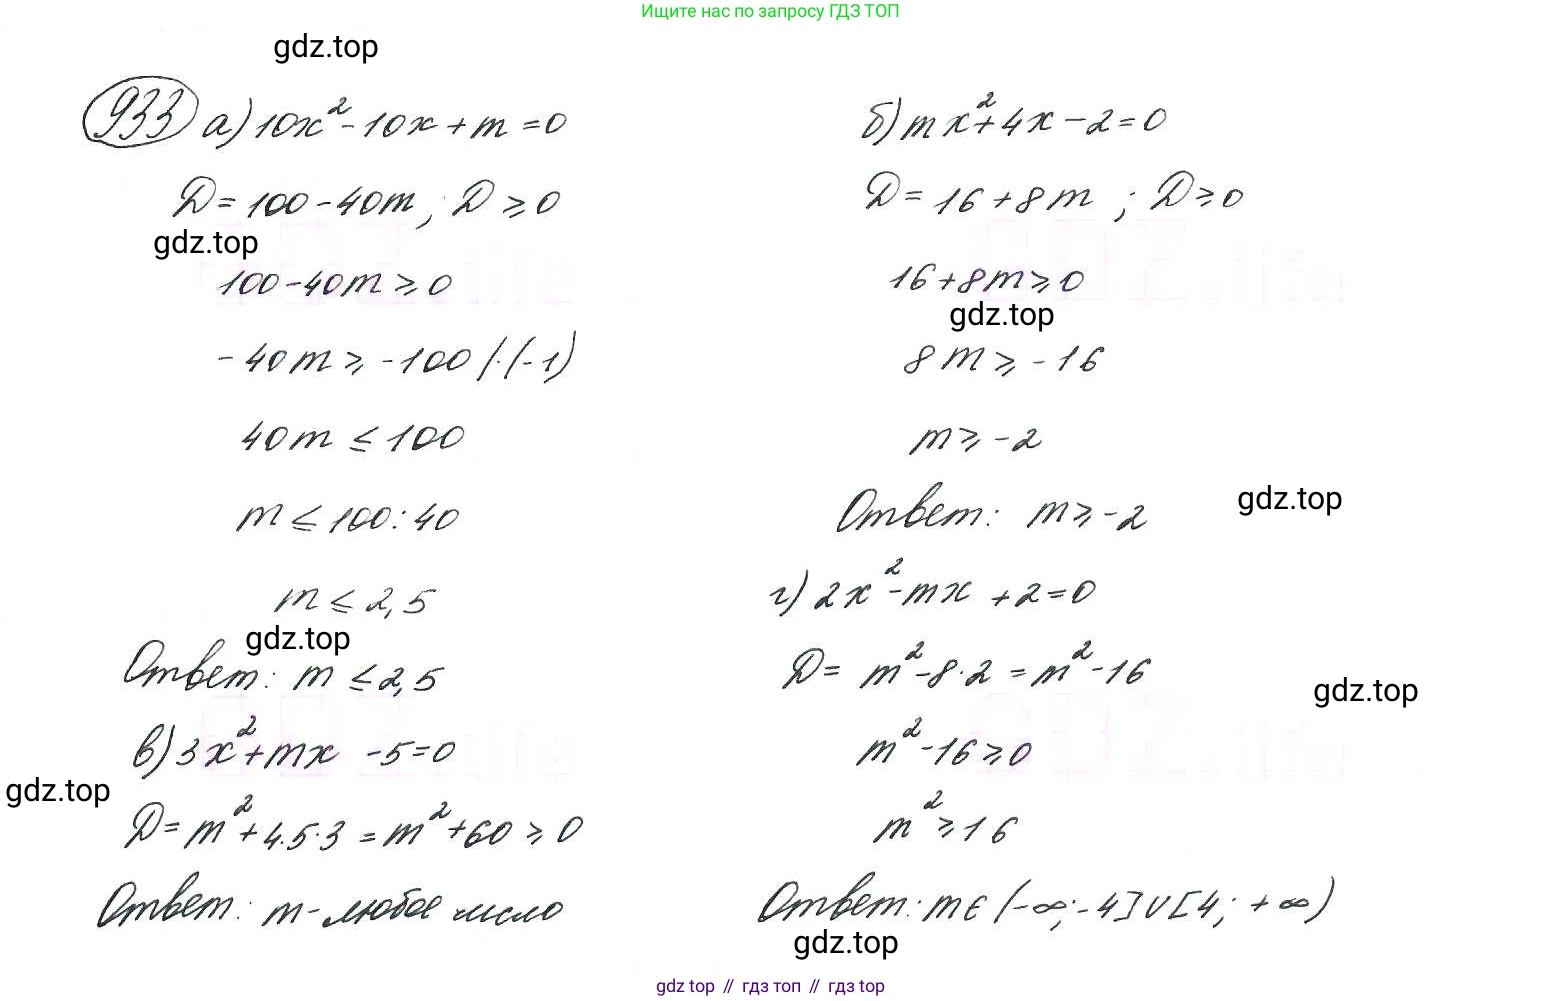 Ищите нас по запросу ГДЗ ТОП
gdz.top
933 а) 10x² - 10x + m = 0
D = 100 - 40m ; D ≥ 0
gdz.top
100 - 40m ≥ 0
- 40m ≥ - 100 | · (-1)
40m ≤ 100
m ≤ 100 : 40
m ≤ 2,5
gdz.top
Ответ: m ≤ 2,5
в) 3x² + mx - 5 = 0
gdz.top
D = m² + 4·5·3 = m² + 60 ≥ 0
Ответ: m - любое число
б) mx² + 4x - 2 = 0
D = 16 + 8m ; D ≥ 0
16 + 8m ≥ 0
gdz.top
8m ≥ - 16
m ≥ - 2
gdz.top
Ответ: m ≥ - 2
г) 2x² - mx + 2 = 0
D = m² - 8·2 = m² - 16
gdz.top
m² - 16 ≥ 0
m² ≥ 16
Ответ: m ∈ (-∞; -4] ∪ [4; +∞)
gdz.top
gdz top // гдз топ // гдз top